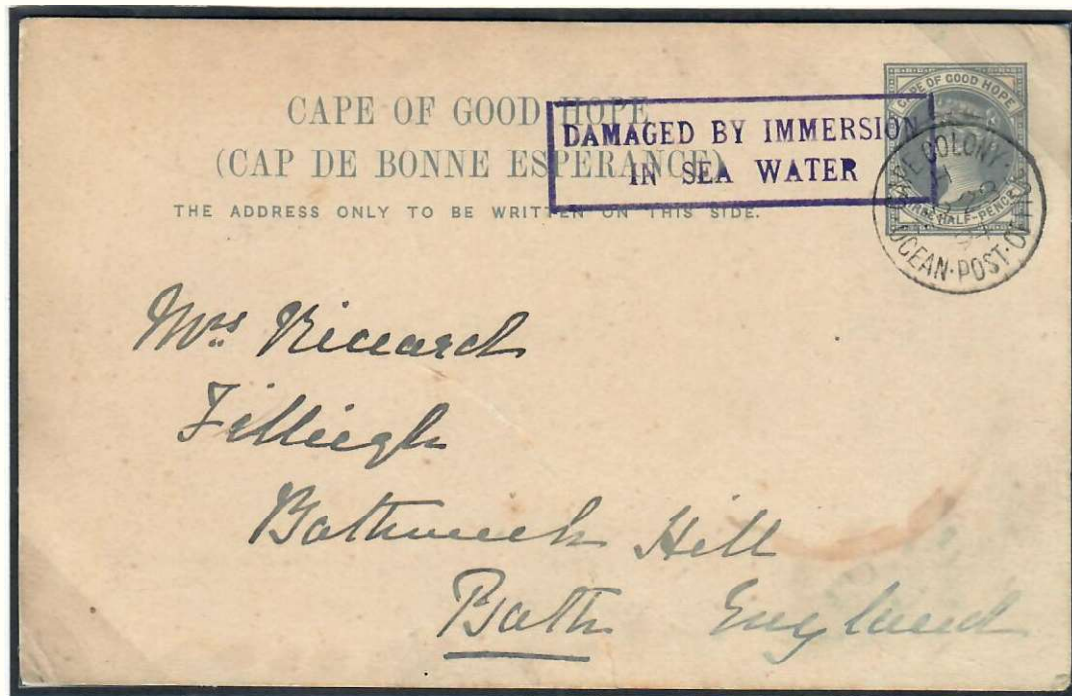 CAPE OF GOOD HOPE
(CAP DE BONNE ESPERANCE)
THE ADDRESS ONLY TO BE WRITTEN ON THIS SIDE.
DAMAGED BY IMMERSION
IN SEA WATER
CAPE OF GOOD HOPE
HALF-PENCE
CAPE COLONY
OCEAN·POST·OFFICE
Mrs Riccard
Filleigh
Bathwick Hill
Bath England